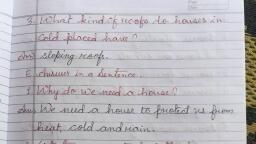 3. What kind of roofs to houses in
cold placed have?
Ans sloping roofs.
E. Answer in a sentence.
1. Why do we need a house?
Ans We need a house to protect us from
heat, cold and rain.